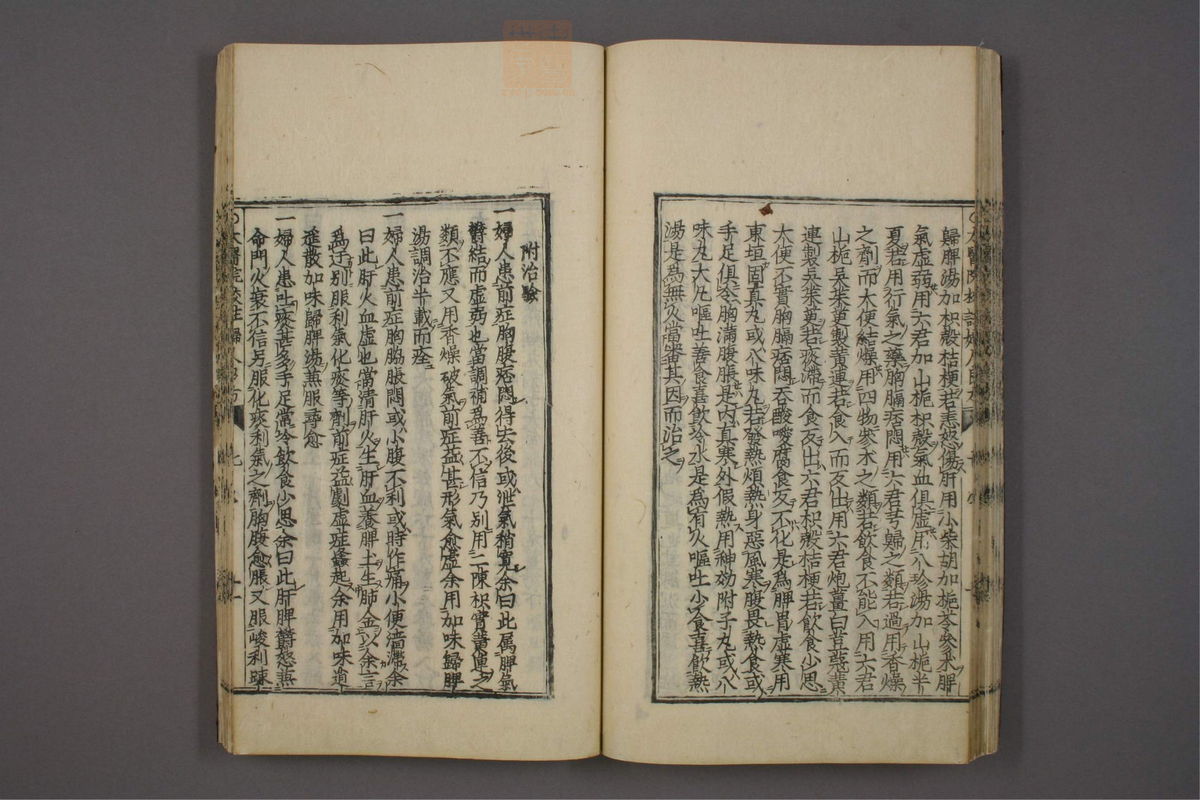 歸脾湯加枳殼桔梗若恚怒傷肝用小柴胡加梔芩參朮脾
氣虛弱用六君加山梔枳殼氣血俱虛用八珍湯加山梔半
夏若用行氣之藥胸膈痞悶用六君芎歸之類若過用香燥
之劑而大便結燥用四物參朮之類若飲食不能入用六君
山梔吳茱萸製黃連若食入而反出用六君炮薑白荳蔻黃
連製吳茱萸若痰滯而食反出六君枳殼桔梗若飲食少思
大便不實胸膈痞悶吞酸噯腐食反不化是為脾胃虛寒用
東垣固真丸或八味丸若發熱煩熱身惡風寒腹畏熱食或
手足俱冷胸滿腹脹是內真寒外假熱用神効附子丸或八
味丸大凡嘔吐善食喜飲冷水是為有火嘔吐少食喜飲熱
湯是為無火當審其因而治之
附治驗
一婦人患前症胸腹痞悶得去後或泄氣稍寬余曰此属脾氣
欝結而虛弱也當調補為善不信乃別用二陳枳實黃連之
類不應又用香燥破氣前症益甚形氣愈虛余用加味歸脾
湯調治半載而痊
一婦人患前症胸脇脹悶或小腹不利或時作痛小便濇滯余
曰此肝火血虛也當清肝火生肝血養脾土生肺金以余言
為迂別服利氣化痰等劑前症益劇虛症蠭起余用加味逍
遙散加味歸脾湯蒸服尋愈
一婦人患吐痰甚多手足常冷飲食少思余曰此肝脾欝怒蒸
命門火衰不信另服化痰利氣之劑胸腹愈脹又服峻利疎